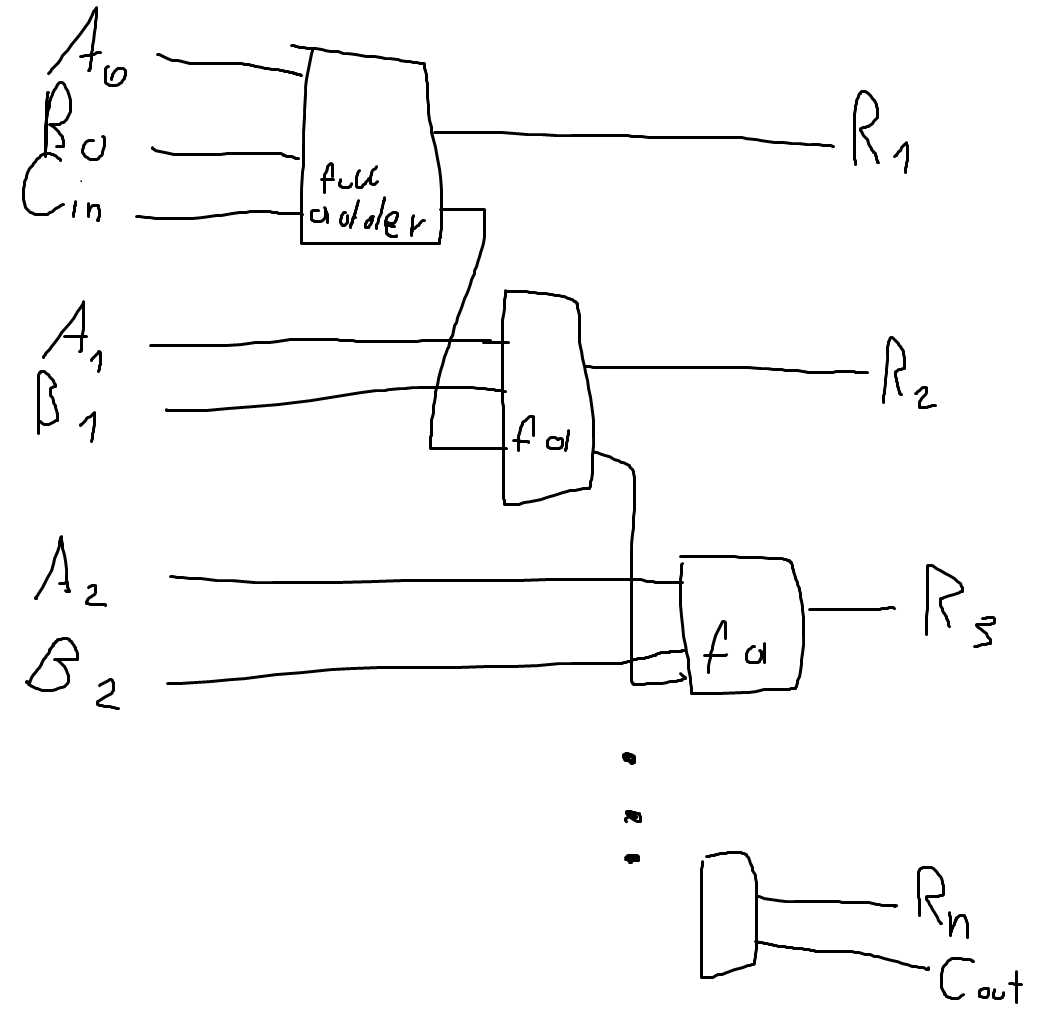 A0
B0
Cin
full
adder
R1
A1
B1
fa
R2
A2
B2
fa
R3
Rn
Cout